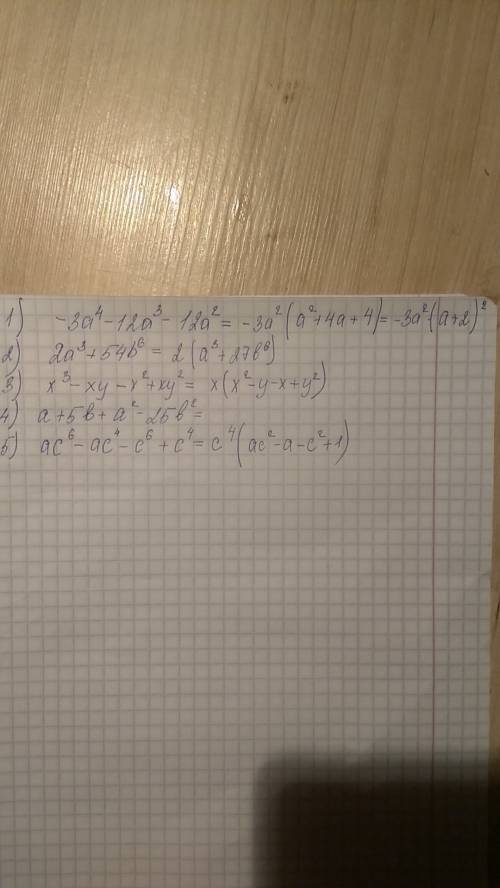 1) -3a⁴-12a³-12a²= -3a²(a²+4a+4)= -3a²·(a+2)²
2) 2a³+54b⁶= 2(a³+27b⁶)
3) x³-xy-x²+xy²= x(x²-y-x+y²)
4) a+5b+a²-25b²=
5) ac⁶-ac⁴-c⁶+c⁴= c⁴(ac²-a-c²+1)